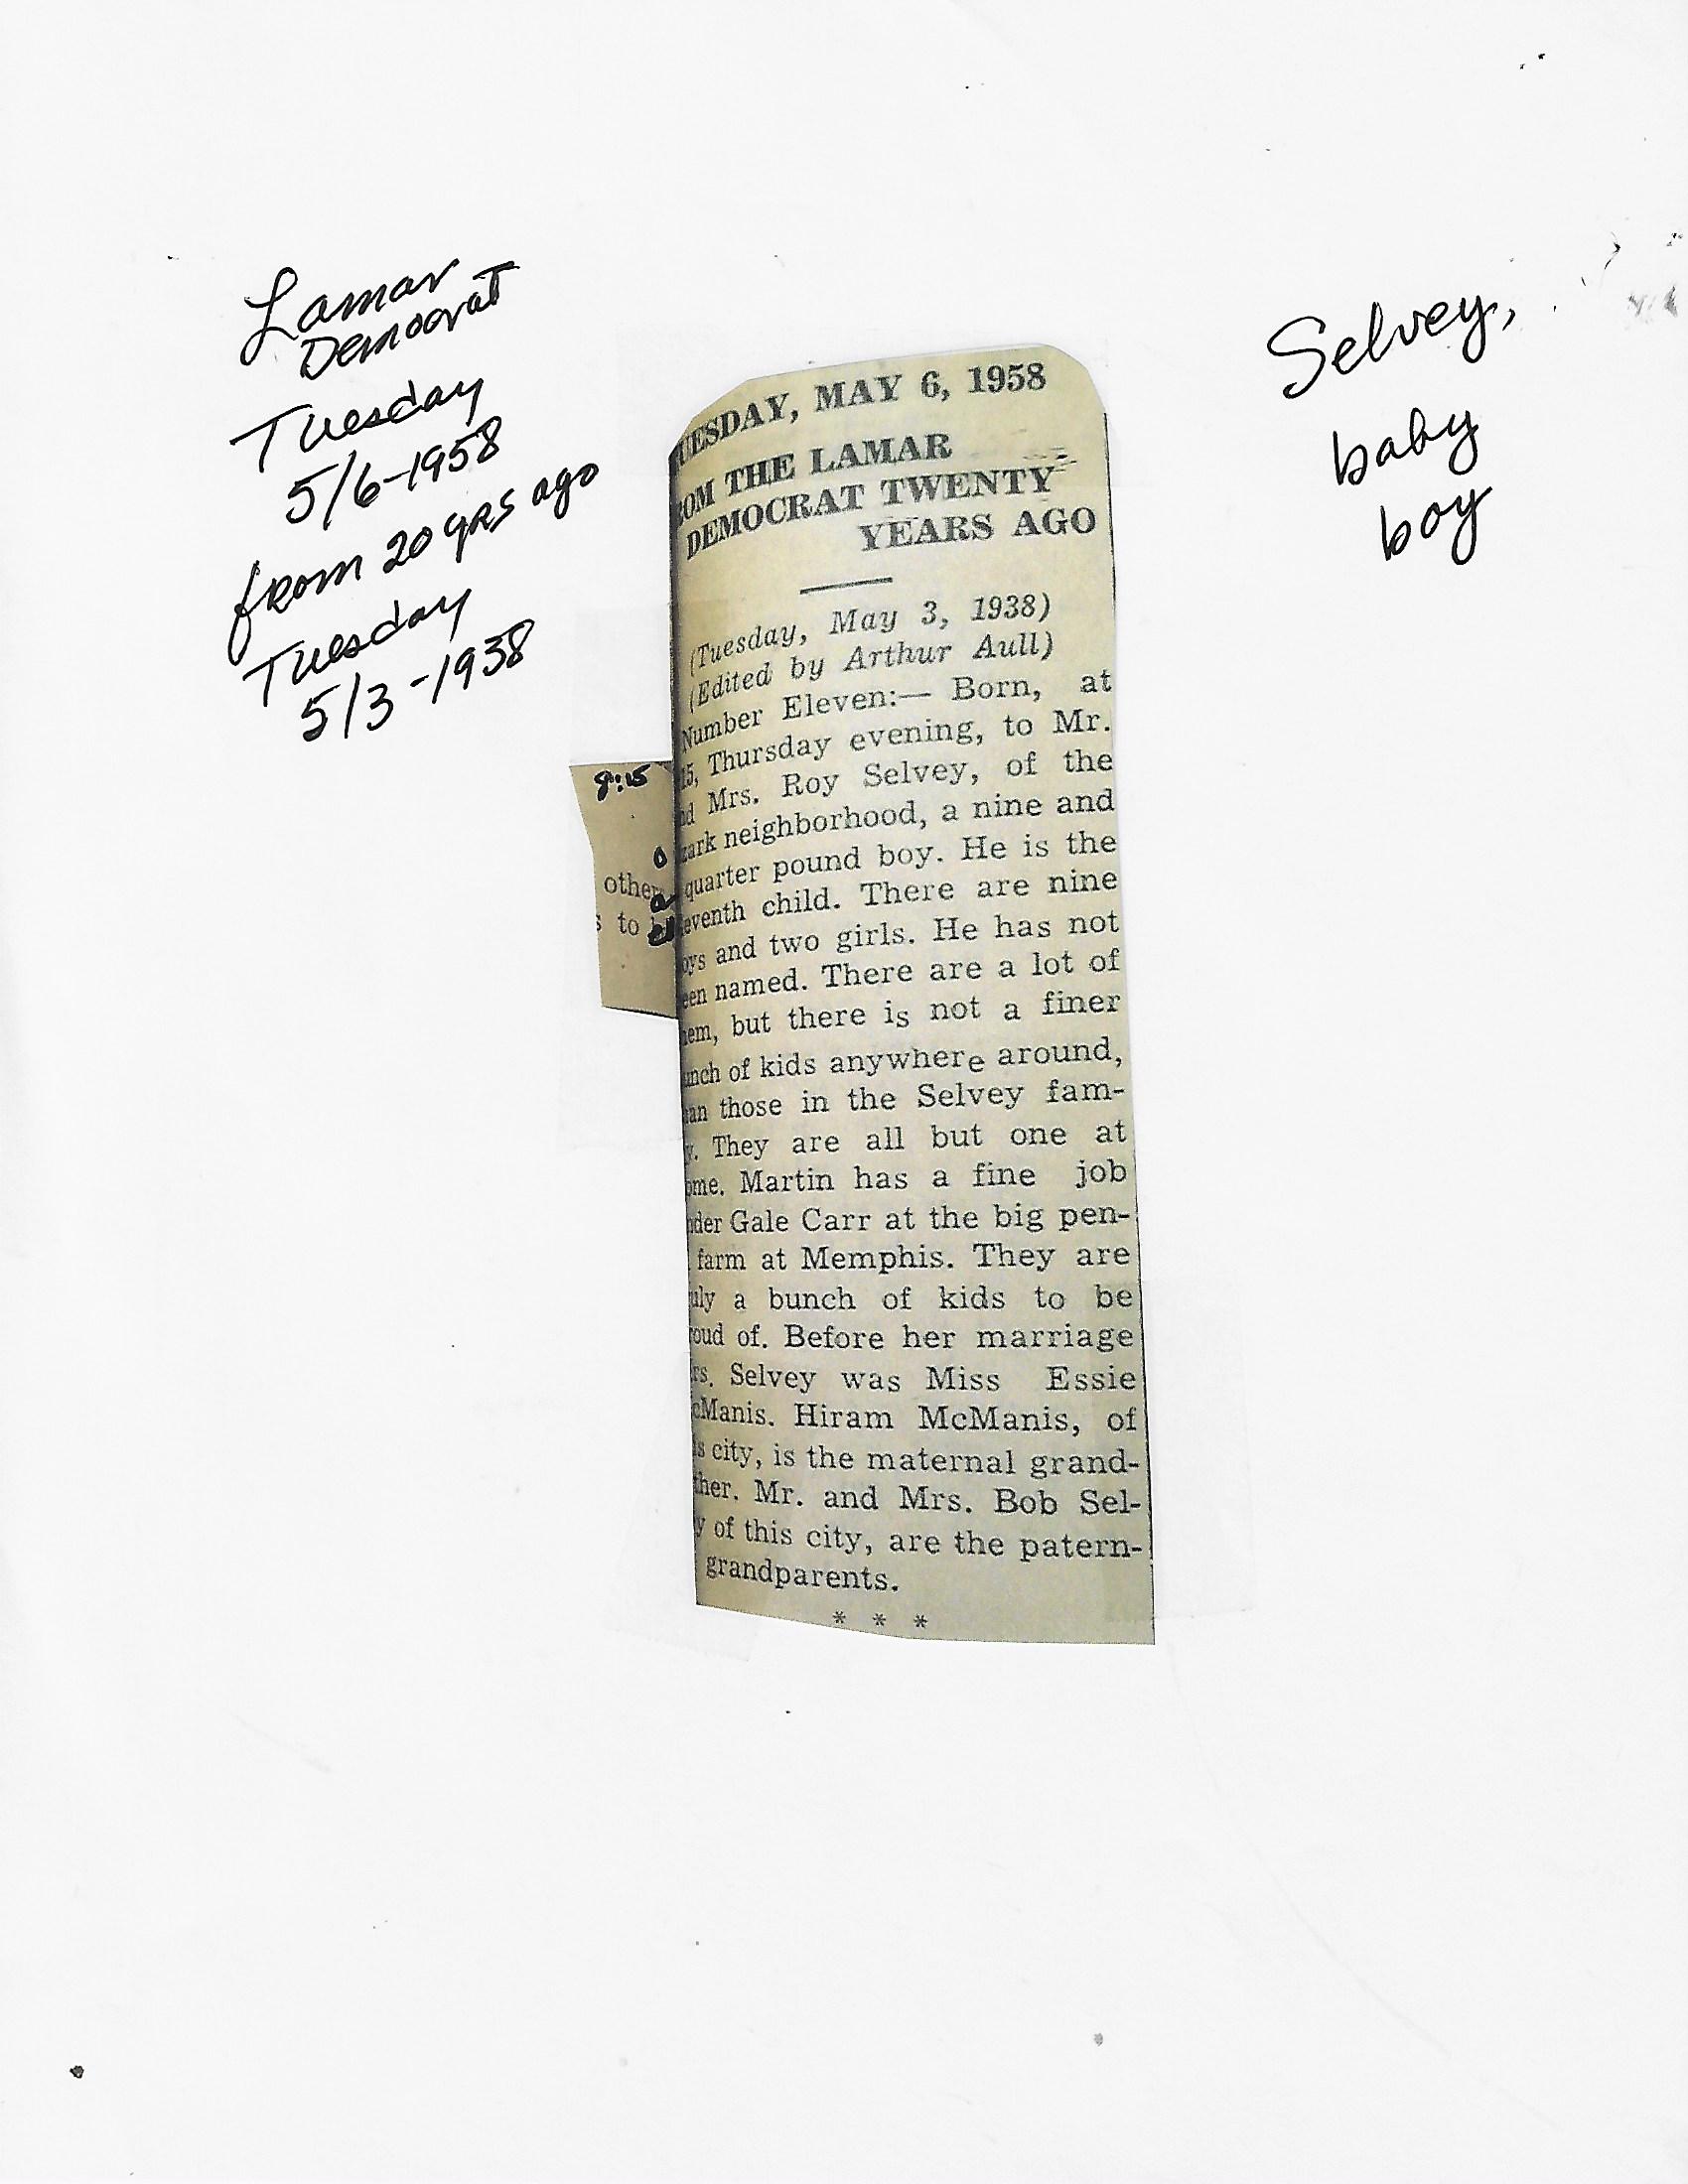 Lamar
Democrat
Tuesday
5/6-1958
from 20 yrs ago
Tuesday
5/3-1938
Selvey,
baby
boy
UESDAY, MAY 6, 1958
ROM THE LAMAR
DEMOCRAT TWENTY
YEARS AGO
(Tuesday, May 3, 1938)
(Edited by Arthur Aull)
Number Eleven:— Born, at
15, Thursday evening, to Mr.
nd Mrs. Roy Selvey, of the
zark neighborhood, a nine and
quarter pound boy. He is the
leventh child. There are nine
oys and two girls. He has not
een named. There are a lot of
hem, but there is not a finer
unch of kids anywhere around,
an those in the Selvey fam-
y. They are all but one at
ome. Martin has a fine job
nder Gale Carr at the big pen-
farm at Memphis. They are
uly a bunch of kids to be
roud of. Before her marriage
rs. Selvey was Miss Essie
cManis. Hiram McManis, of
s city, is the maternal grand-
ther. Mr. and Mrs. Bob Sel-
y of this city, are the patern-
grandparents.
* * *
8:15
O
othe
s to